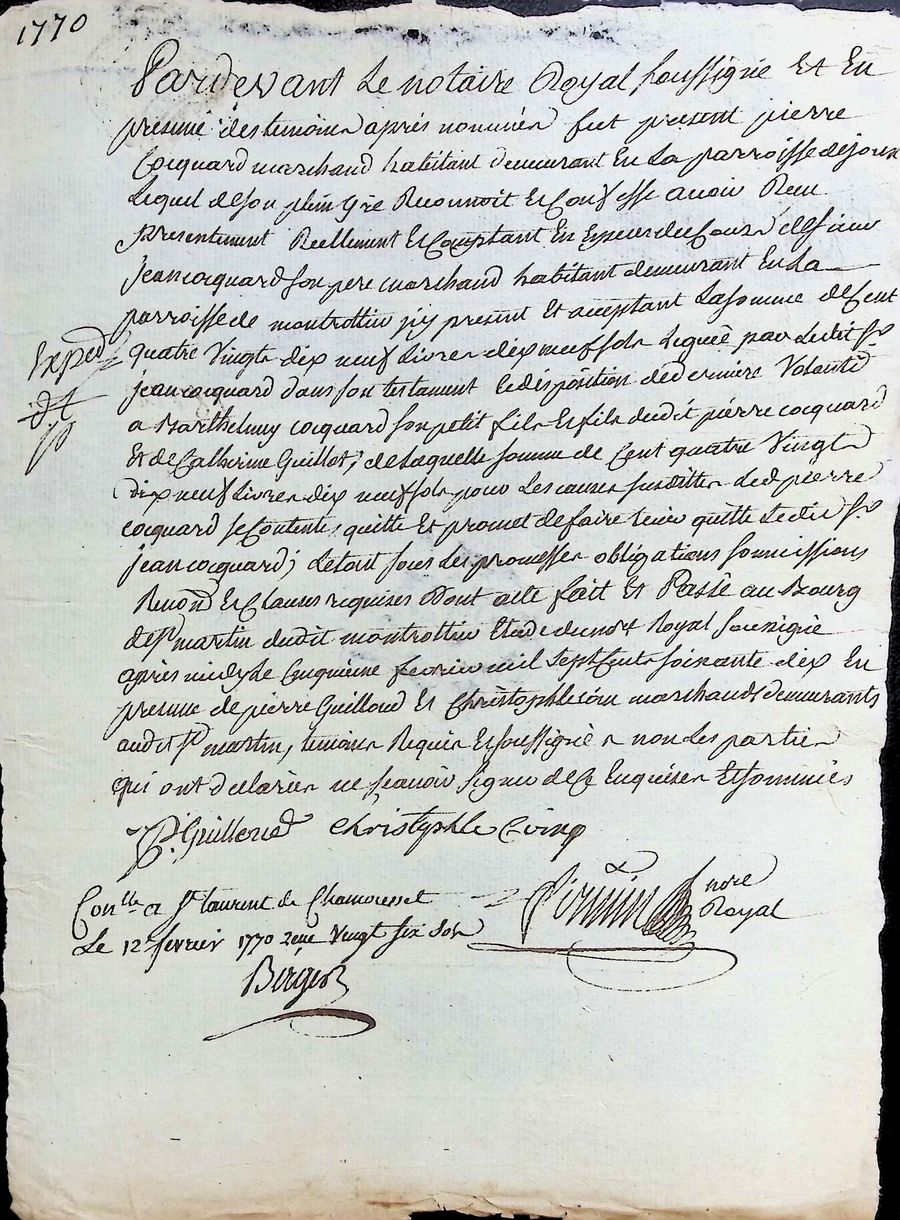 1770
Pardevant Le notaire Royal soussigné Et En
presence des temoins après nommés fut present pierre
Cocquard marchand habitant demeurant En La parroisse de joux
Lequel de son plein gré Reconnoit Et Confesse avoir Receu
presentement Reellement Et Comptant En Especes de Cours de sieur
jean cocquard son pere marchand habitant demeurant En La
parroisse de montrottier jcy present Et acceptant La somme de Cent
quatre Vingts dix neuf Livres dix neuf sols Leguée par Ledit sr
jean cocquard dans son testament de disposition de derniere Volonté
a Barthelemy cocquard son petit fils Et fils dudit pierre cocquard
Et de Catherine Guillot, de laquelle somme de Cent quatre Vingts
dix neuf Livres dix neuf sols pour Les causes susdittes Led pierre
cocquard se Contente, quitte Et promet de faire tenir quitte Ledit sr
jean cocquard; de tout sous Les promesses obligations soumissions
Renond Et Clauses requises Dont acte fait Et Passé au Bourg
de st martin dudit montrottier Etude du not Royal soussigné
après midy Le Cinquieme fevrier mil sept Cents soixante dix En
presence de pierre Guilloud Et Christophle marchands demeurants
audit st martin, temoins Requis Et soussignés non Les parties
qui ont declarées ne sçavoir signer de Ce Enquises Et sommées
Exped
P. Guilloud Christophle
nore
Royal
Conlle a St Laurent de Chamousset
Le 12e fevrier 1770 Vingt six sols
Berger